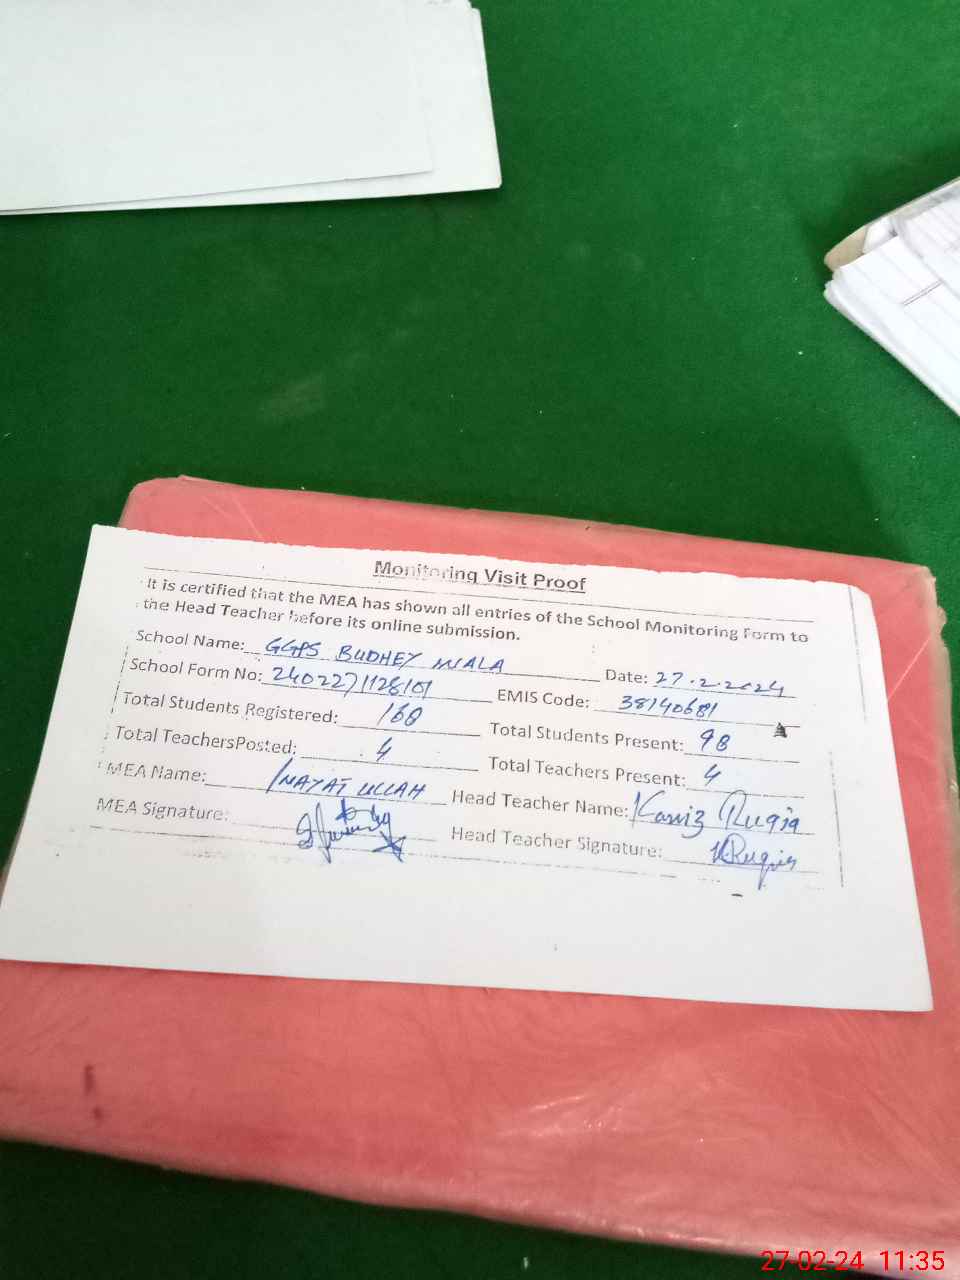 Monitoring Visit Proof
It is certified that the MEA has shown all entries of the School Monitoring Form to
the Head Teacher before its online submission.
School Name: GGPS BUDHEY WALA Date: 27.2.2024
School Form No: 2402271128101 EMIS Code: 38140681
Total Students Registered: 160 Total Students Present: 98
Total TeachersPosted: 4 Total Teachers Present: 4
MEA Name: INAYAT ULLAH Head Teacher Name: Kaniz Ruqia
MEA Signature: Head Teacher Signature: KRuqia
27-02-24 11:35